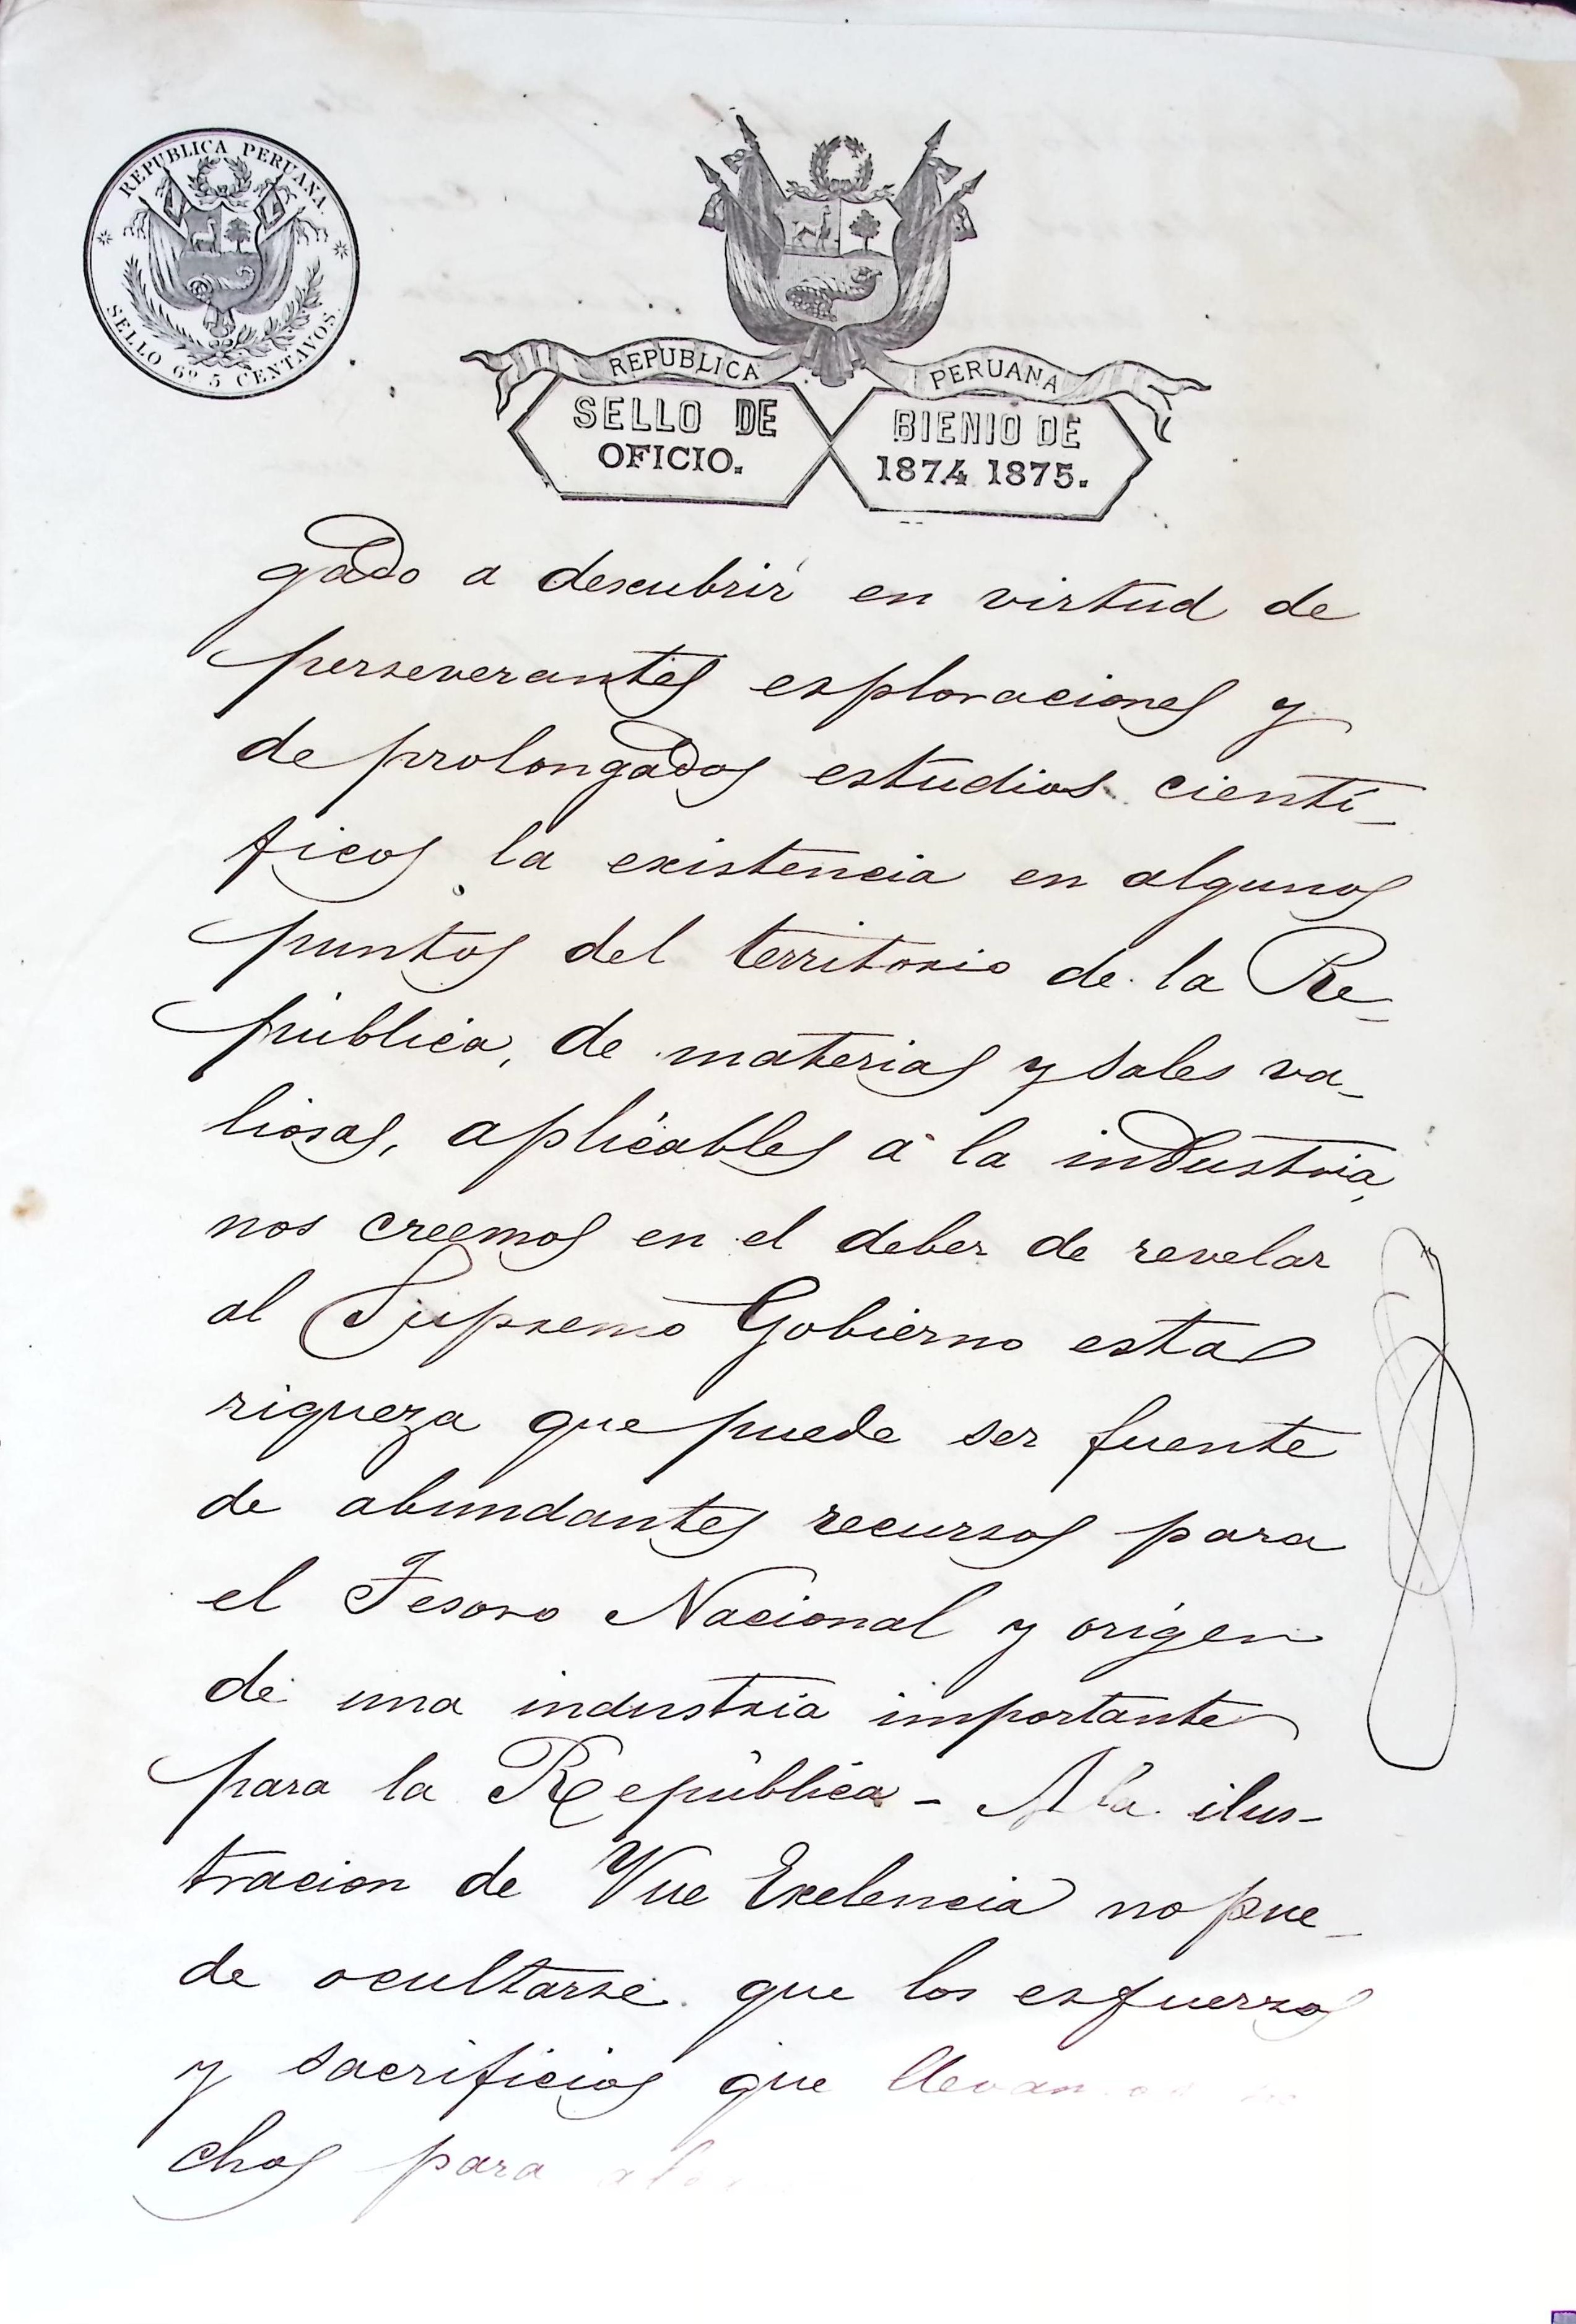 REPUBLICA PERUANA.
SELLO 6º 5 CENTAVOS.
REPUBLICA PERUANA
SELLO DE OFICIO.
BIENIO DE 1874 1875.
gado a descubrir en virtud de
perseverantes esploraciones y
de prolongados estudios cientí-
ficos la existencia en algunos
puntos del territorio de la Re-
pública, de materias y sales va-
liosas, aplicables á la industria,
nos creemos en el deber de revelar
al Supremo Gobierno esta
riqueza que puede ser fuente
de abundantes recursos para
el Tesoro Nacional y orígen
de una industria importante
para la República - A la ilus-
tracion de Vue Exelencia no pue-
de ocultarse que los esfuerzos
y sacrificios que
chos para